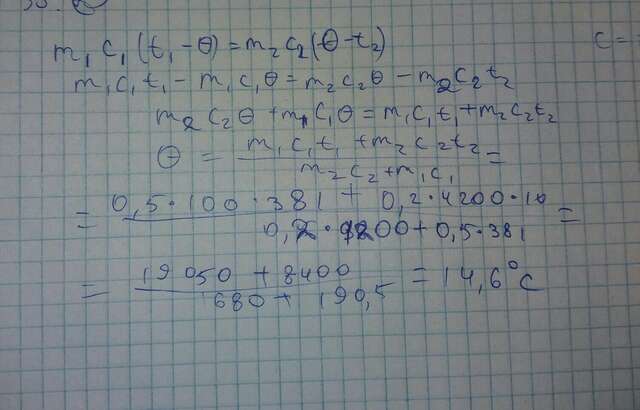 c =
m₁c₁(t₁-θ)=m₂c₂(θ-t₂)
m₁c₁t₁-m₁c₁θ=m₂c₂θ-m₂c₂t₂
m₂c₂θ+m₁c₁θ=m₁c₁t₁+m₂c₂t₂
θ = (m₁c₁t₁+m₂c₂t₂)/(m₂c₂+m₁c₁) =
= (0,5·100·381 + 0,2·4200·10)/(0,2·4200+0,5·381) =
= (19050+8400)/(680+190,5) = 14,6°C